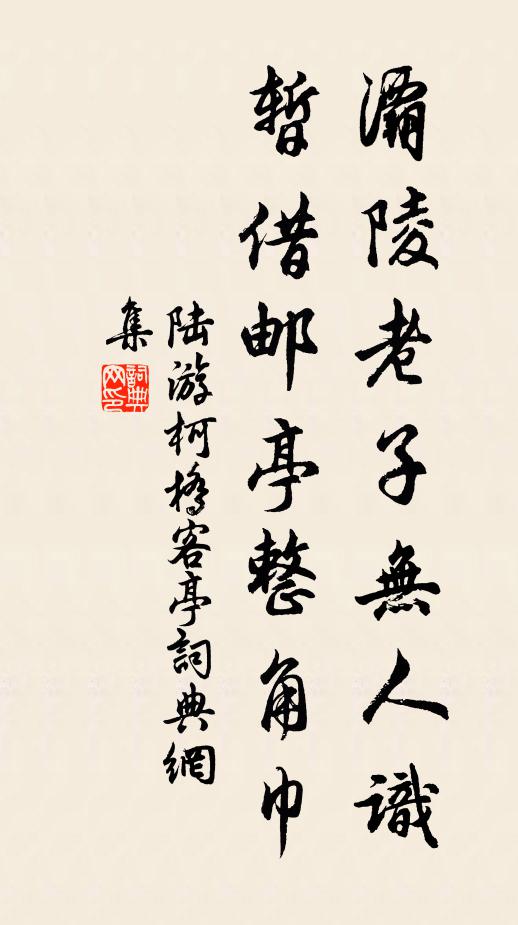 灞陵老子無人識
暫借邮亭整角巾
陆游柯橋客亭詞典網
集
詞典網印